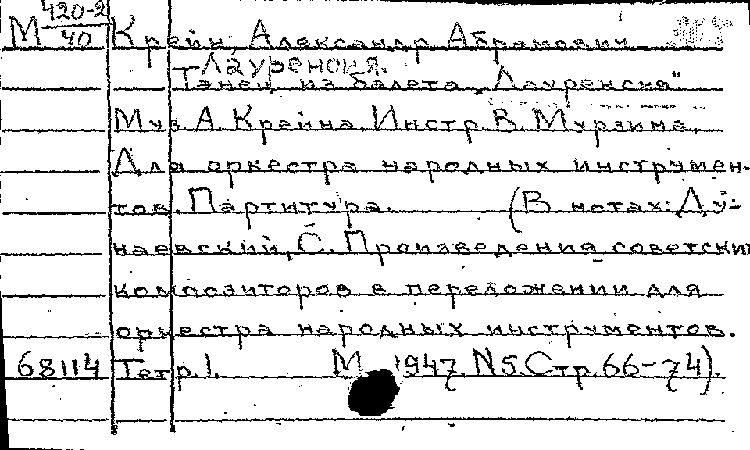 М 420-2/40 Крейн, Александр Абрамович
Лауренсия.
Танец из балета „Лауренсия"
Муз. А. Крейна. Инстр. В. Мурзина.
Для оркестра народных инструмен-
тов. Партитура. (В нотах: Ду-
наевский, С. Произведения советских
композиторов в переложении для
оркестра народных инструментов.
68114 Тетр. 1. М. 1947. N5. Стр. 66-74).